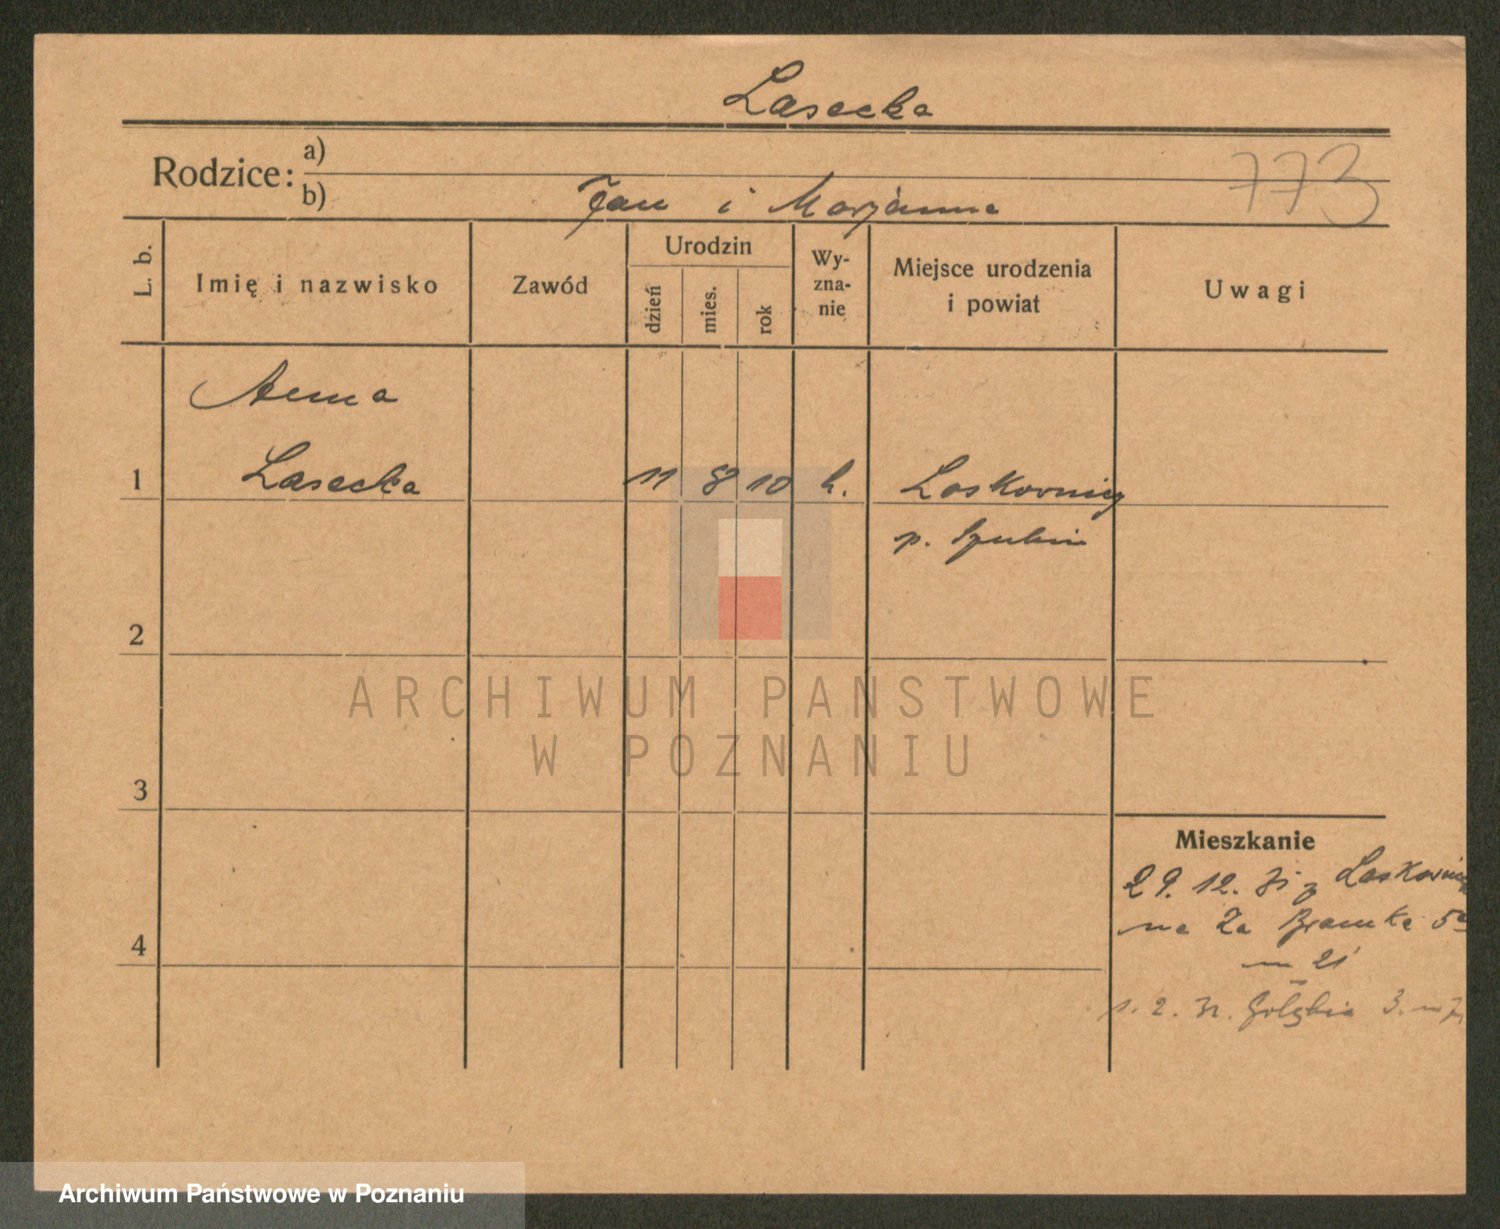 Lasecka
Rodzice: a)
b) Jan i Marjanna
773
L. b.
Imię i nazwisko
Zawód
Urodzin
dzień
mies.
rok
Wy-
zna-
nie
Miejsce urodzenia
i powiat
Uwagi
Anna
1 Lasecka 11 8 10 k. Laskownicy
p. Szubin
2
ARCHIWUM PAŃSTWOWE
W POZNANIU
3
Mieszkanie
29. 12. 31 z Laskownicy
na Za Bramką 5
4
m 21
1. 2. 32. Gołębia 3. m
Archiwum Państwowe w Poznaniu